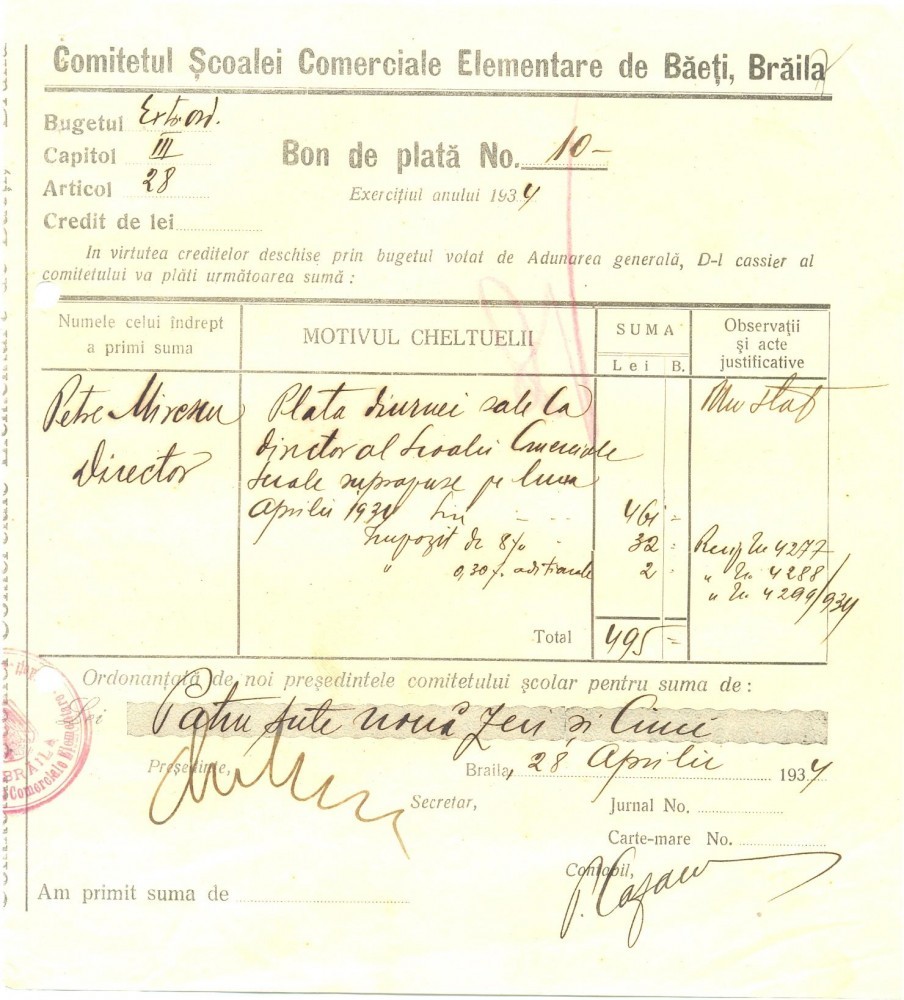 Comitetul Școalei Comerciale Elementare de Băeți, Brăila
Bugetul Extraord.
Capitol III
Articol 28
Credit de lei
Bon de plată No. 10-
Exercițiul anului 1934
In virtutea creditelor deschise prin bugetul votat de Adunarea generală, D-l cassier al
comitetului va plăti următoarea sumă :
Numele celui îndrept
a primi suma
MOTIVUL CHELTUELII
SUMA
Lei B.
Observații
și acte
justificative
Petre Mirescu
Director
Plata diurnei sale ca
director al Școalei Comerciale
serale suprapuse pe luna
Aprilie 1934 Lei 461 =
Impozit de 8% 32 =
" 0,30% adiționale 2
Un stat
Recip No 4277
" No. 4288
" No. 4299/934
Total 495 =
Ordonanțată de noi președintele comitetului școlar pentru suma de :
Lei Patru sute nouă zeci și cinci
Președinte,
Braila, 28 Aprilie 1934
Secretar,
Jurnal No.
Carte-mare No.
Contabil,
Am primit suma de
BRĂILA